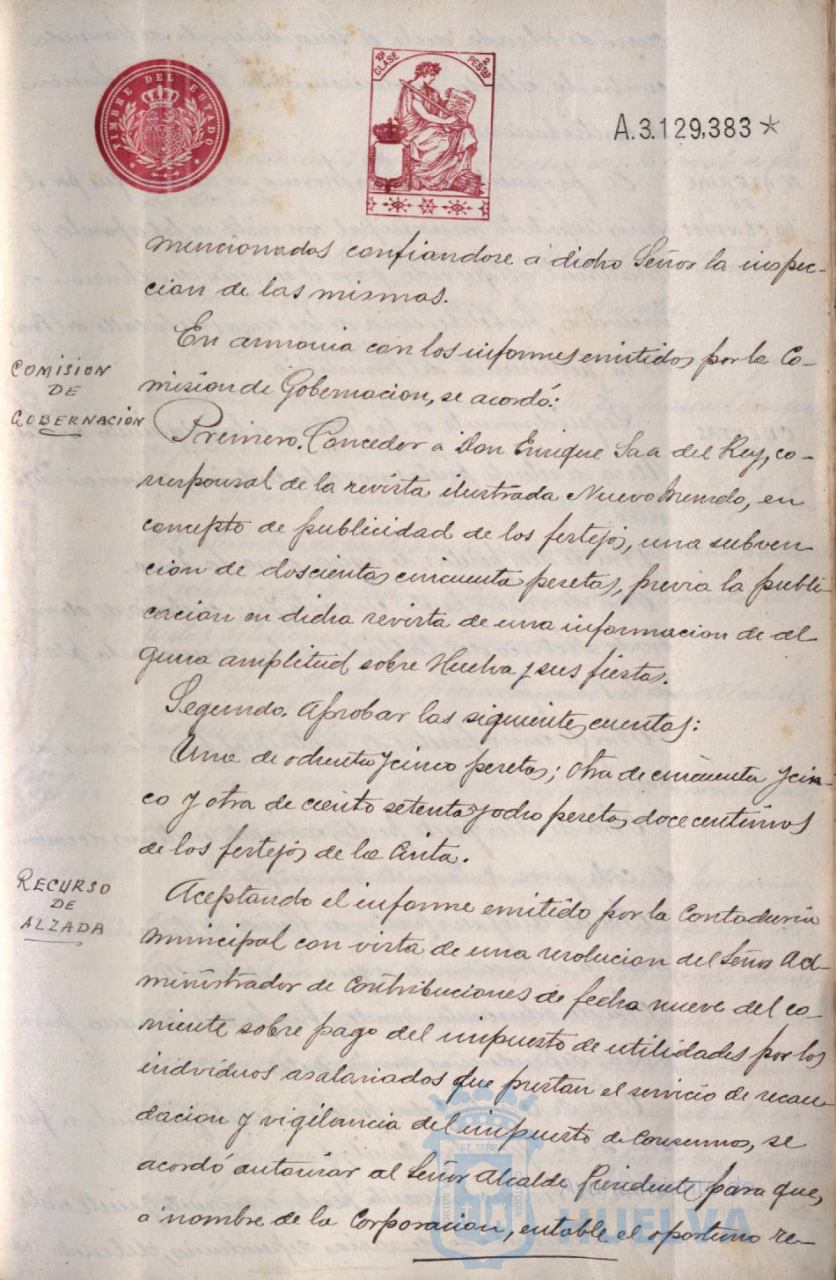 TIMBRE DEL ESTADO
10ª CLASE
2 PESTAS
A.3.129,383 *
mencionados confiandose á dicho Señor la inspec-
cion de las mismas.
COMISION
DE
GOBERNACIÓN
En armonia con los informes emitidos por la Co-
mision de Gobernacion, se acordó:
Primero. Conceder a Don Enrique Saa del Rey, co-
rresponsal de la revista ilustrada Nuevo Mundo, en
concepto de publicidad de los festejos, una subven
cion de doscientas cincuenta pesetas, previa la publi-
cacion en dicha revista de una informacion de al
guna amplitud sobre Huelva y sus fiestas.
Segundo. Aprobar las siguientes cuentas:
Una de ochenta y cinco pesetas; otra de cincuenta y cin-
co y otra de ciento setenta y ocho pesetas doce centimos
de los festejos de la Cinta.
RECURSO
DE
ALZADA
Aceptando el informe emitido por la Contaduria
municipal con vista de una resolucion del Señor Ad-
ministrador de Contribuciones de fecha nueve del co-
rriente sobre pago del impuesto de utilidades por los
individuos asalariados que prestan el servicio de recau-
dacion y vigilancia del impuesto de Consumos, se
acordó autorizar al Señor Alcalde Presidente para que,
a nombre de la Corporacion, entable el oportuno re-
HUELVA